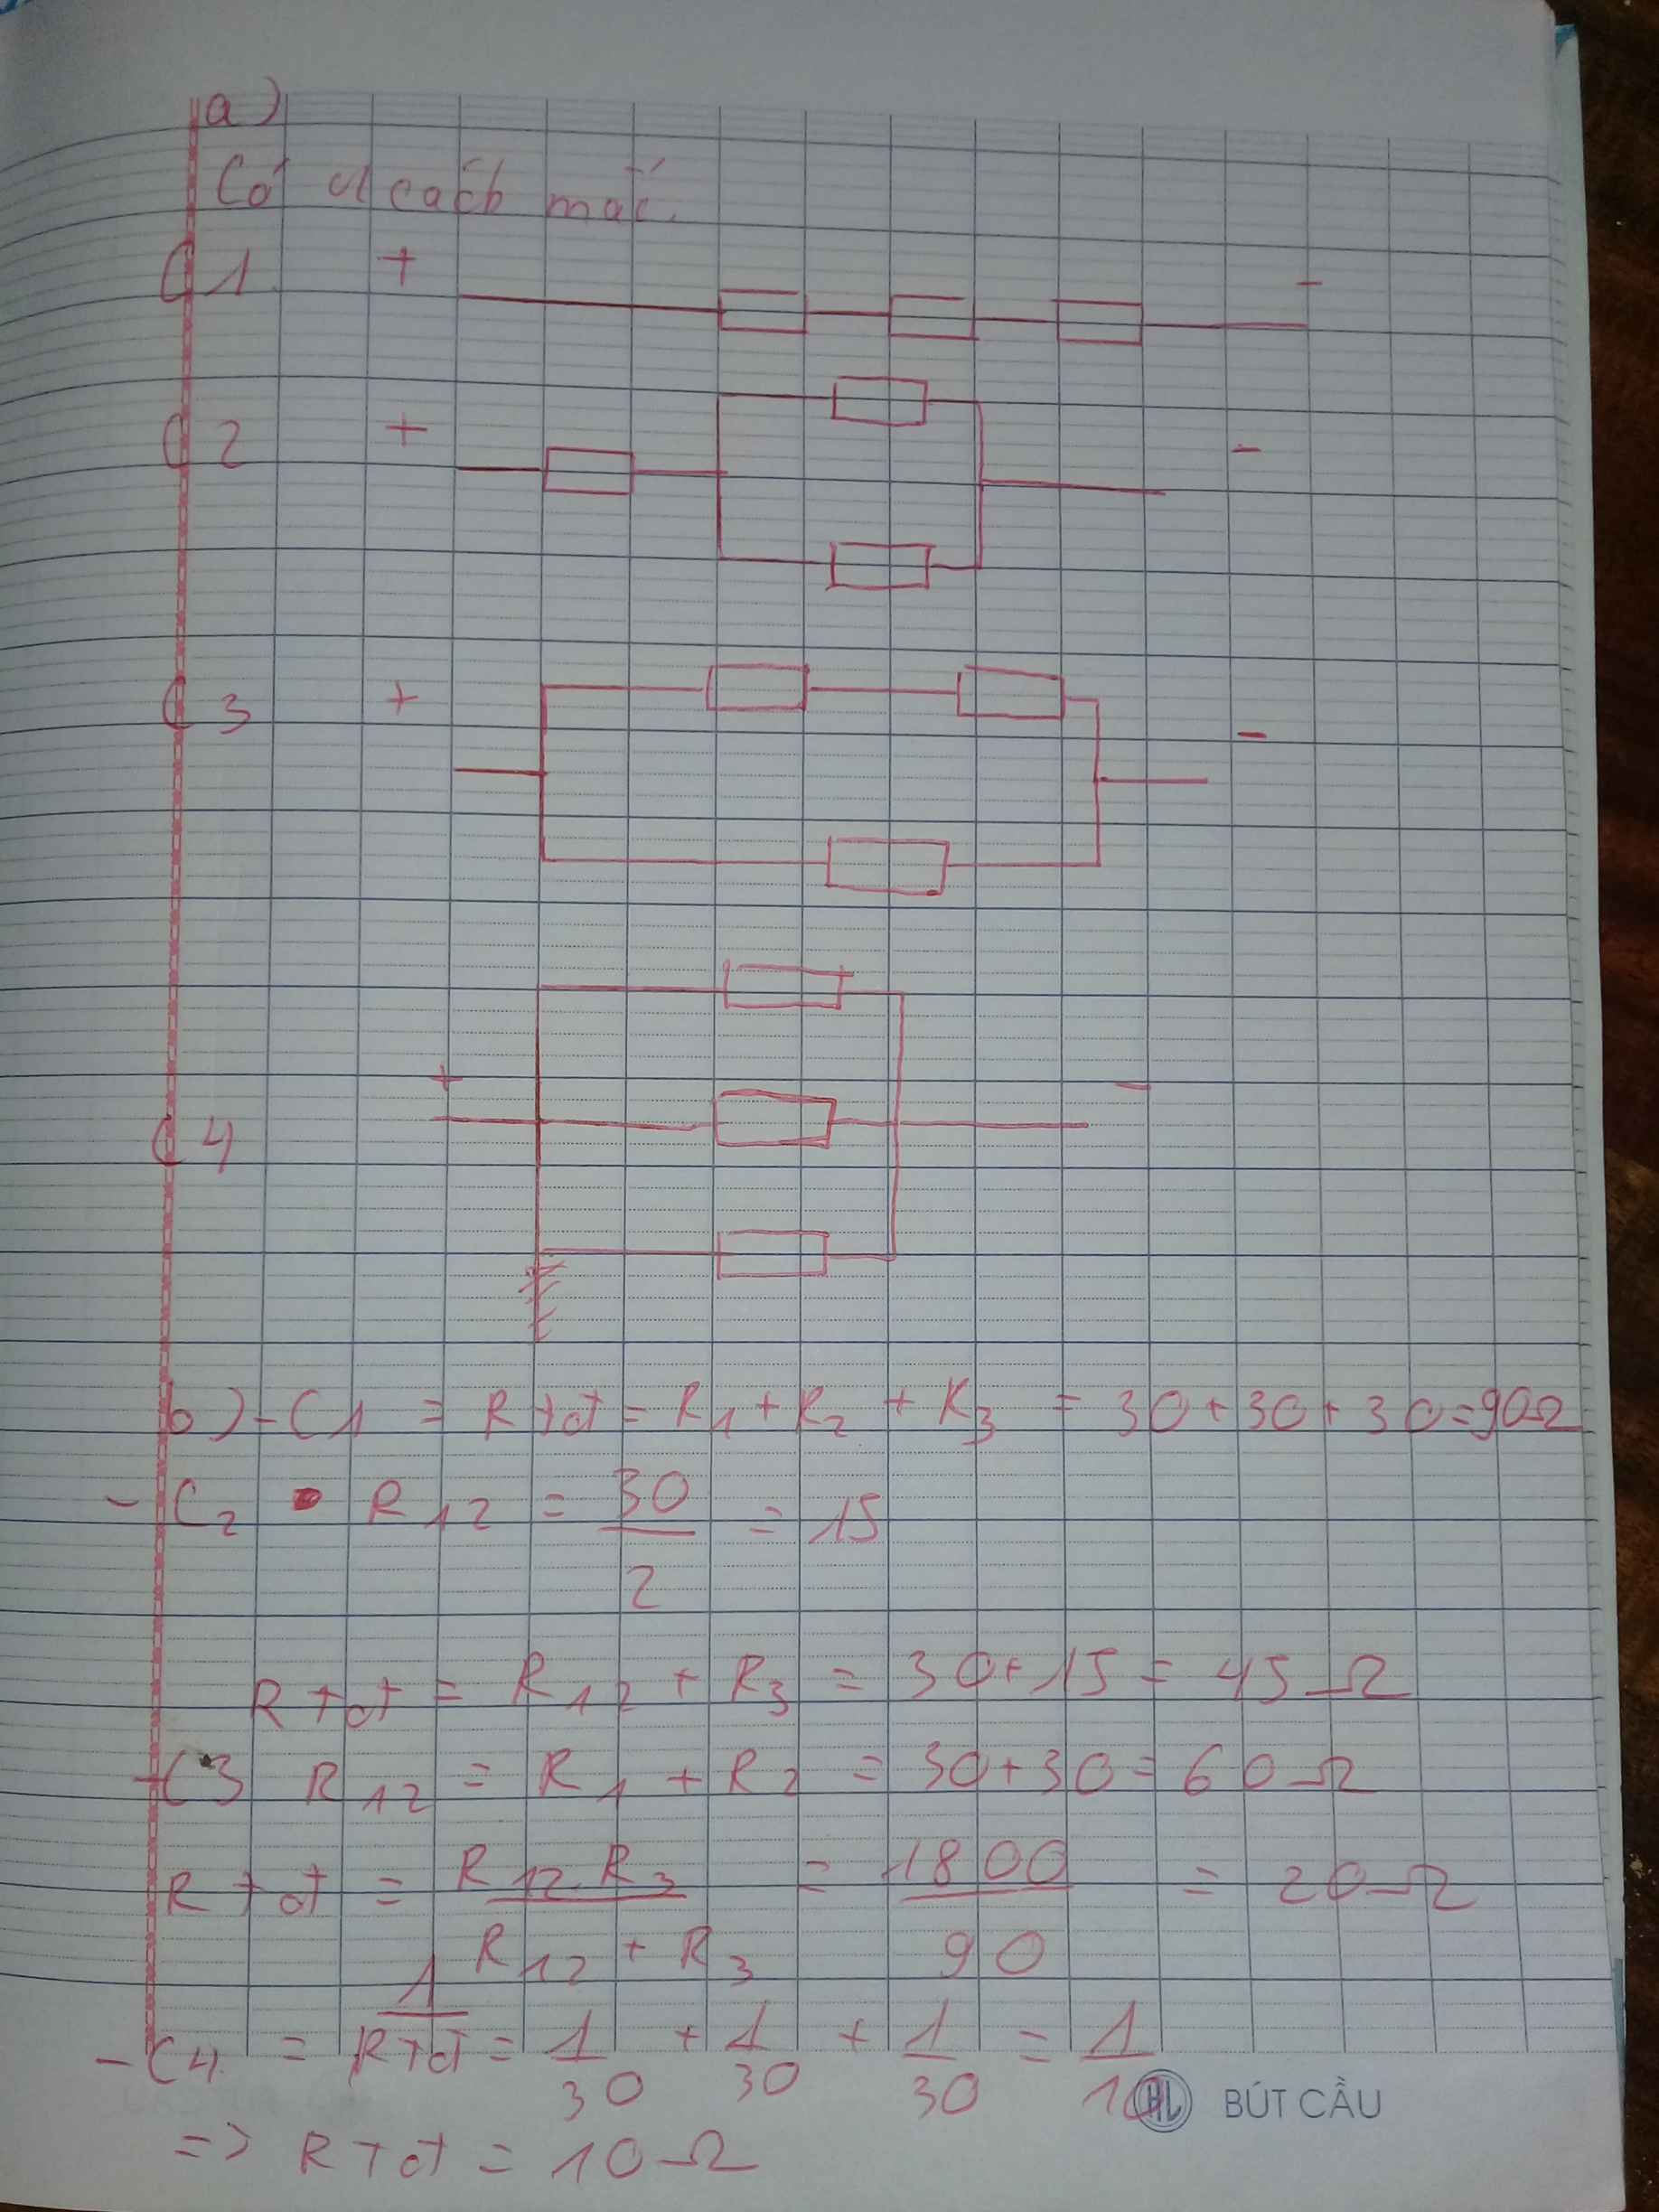 a)
Có 4 cách mắc.
C1 + -
C2 + -
C3 + -
+ -
C4
b) - C1 = Rtđ = R1 + R2 + R3 = 30 + 30 + 30 = 90Ω
- C2 R12 = 30/2 = 15
Rtđ = R12 + R3 = 30 + 15 = 45Ω
- C3 R12 = R1 + R2 = 30 + 30 = 60Ω
Rtđ = R12.R3/R12 + R3 = 1800/90 = 20Ω
- C4. = 1/Rtđ = 1/30 + 1/30 + 1/30 = 1/10
HL BÚT CẦU
=> Rtđ = 10Ω